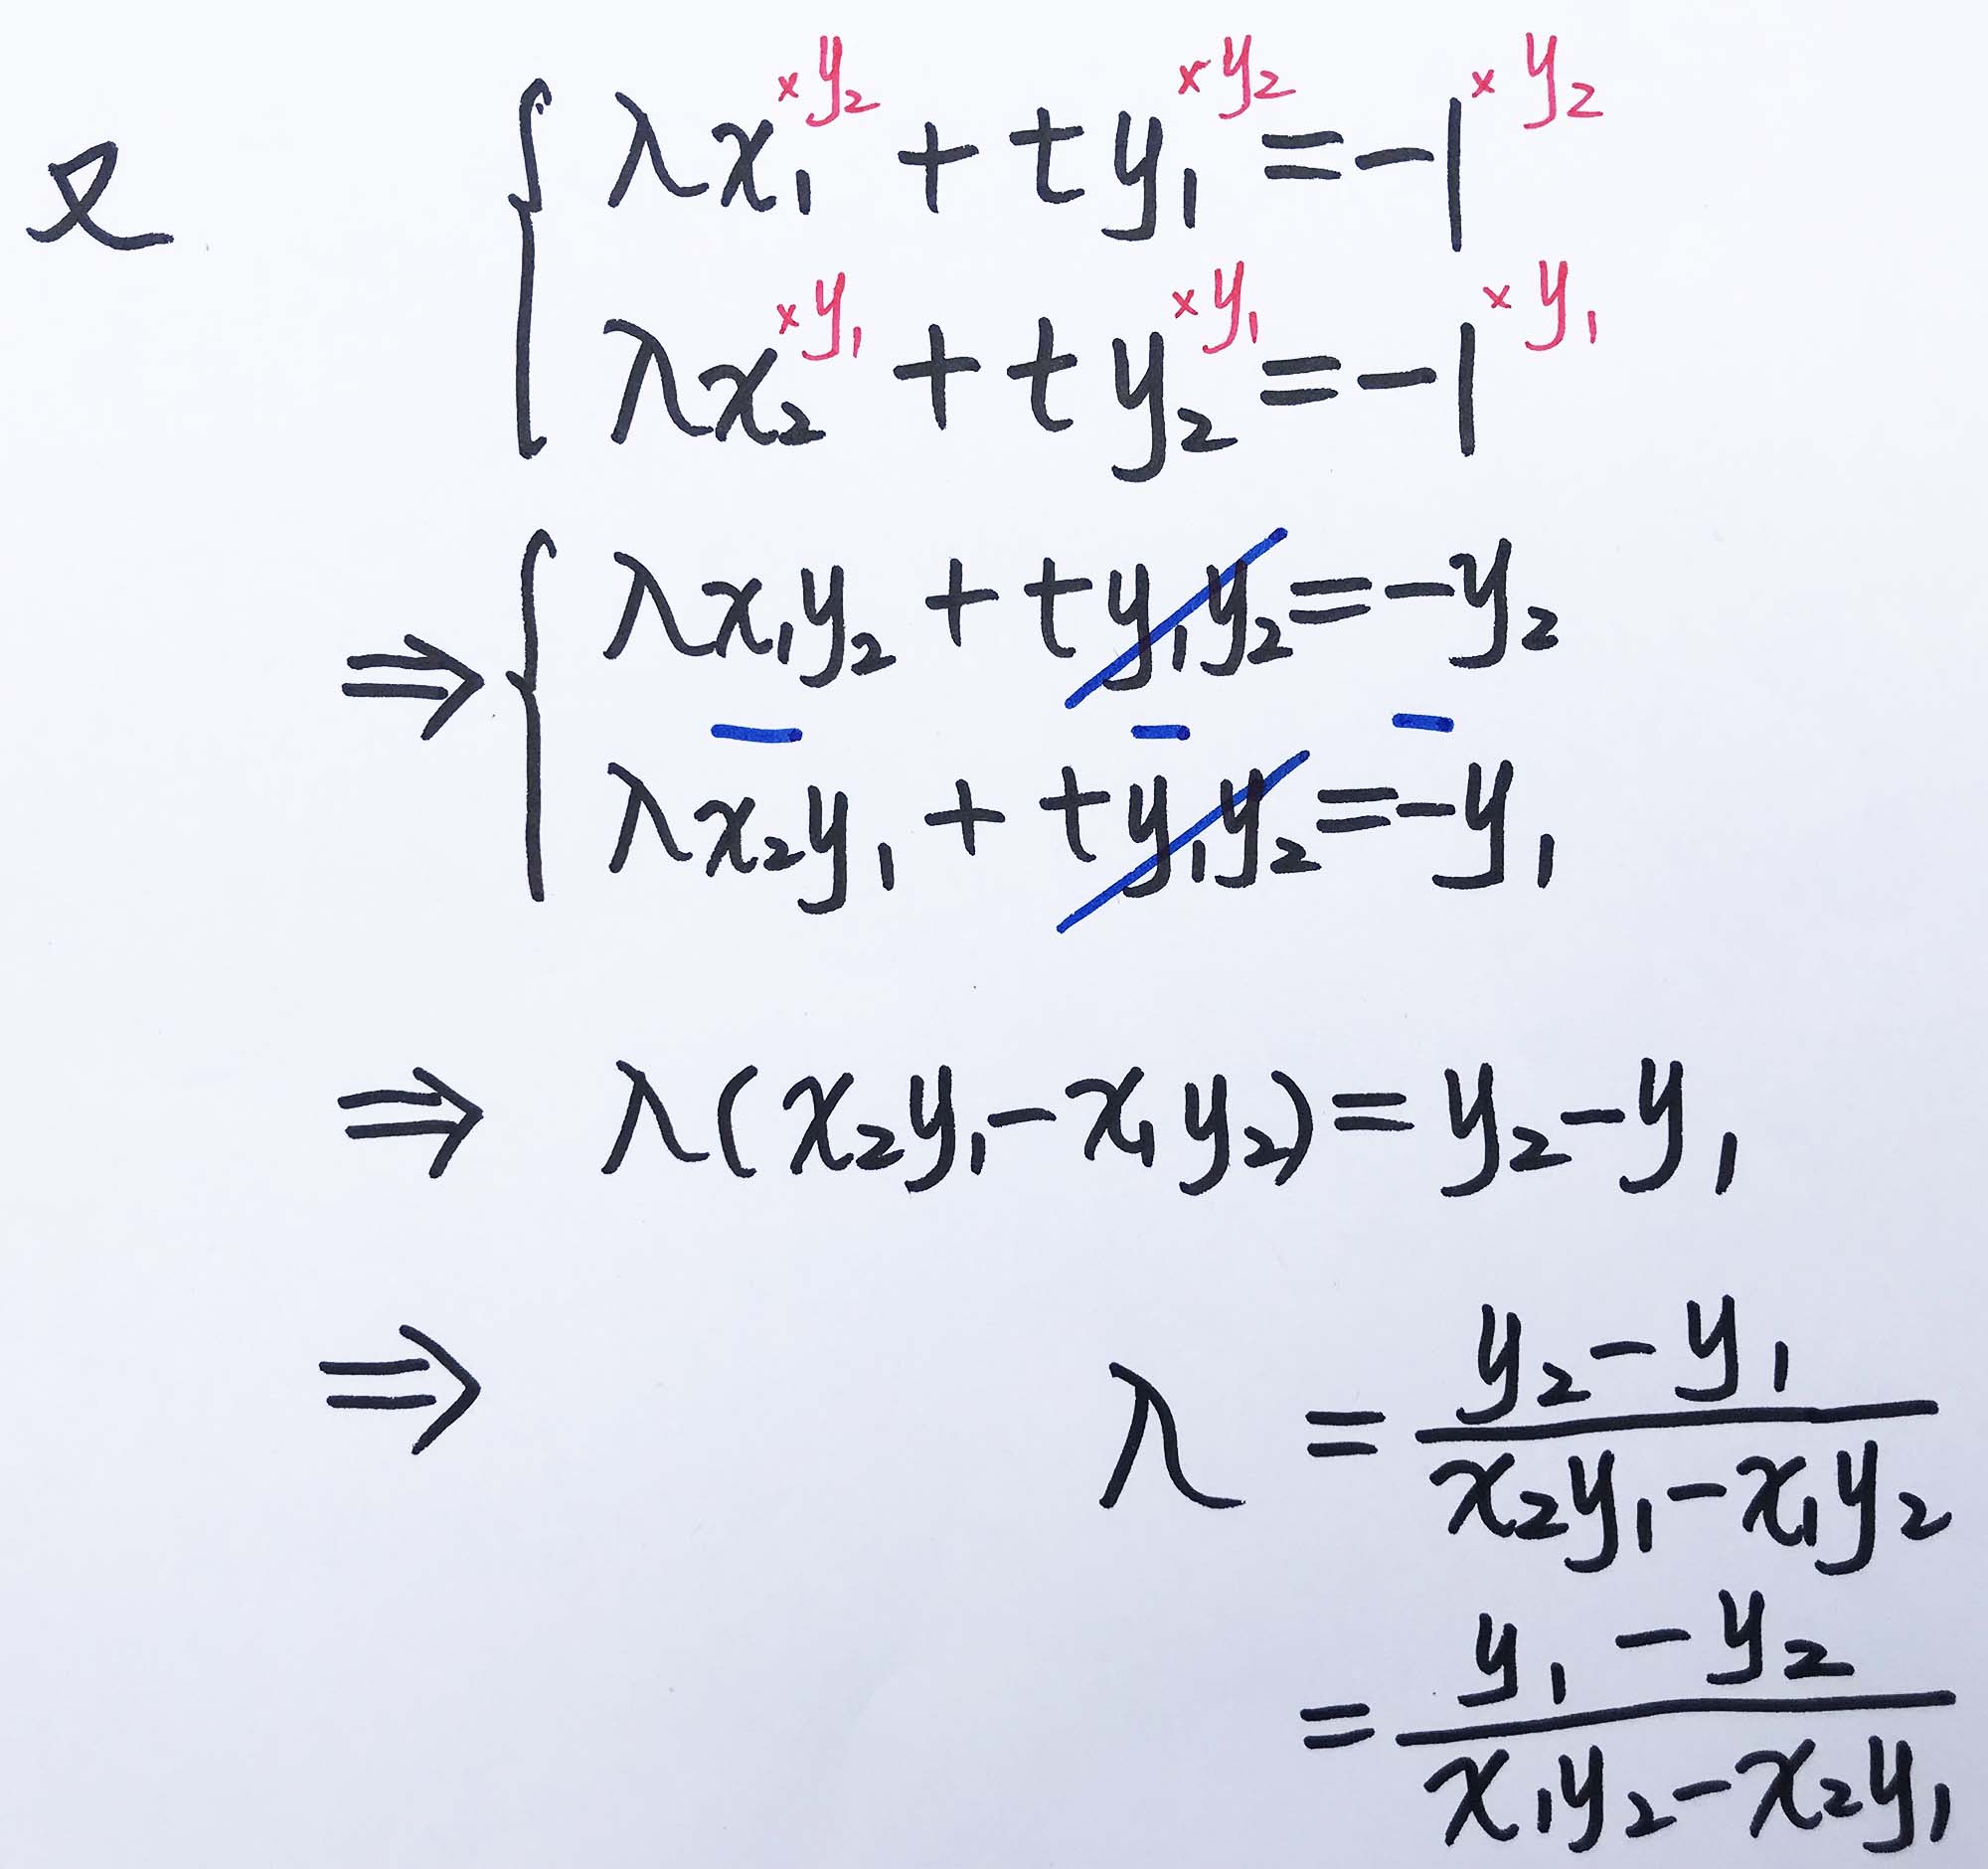 ×y₂ ×y₂ ×y₂
又 { λx₁ + ty₁ = -1
×y₁ ×y₁ ×y₁
λx₂ + ty₂ = -1
⇒ { λx₁y₂ + ty₁y₂ = -y₂
− − −
λx₂y₁ + ty₁y₂ = -y₁
⇒ λ(x₂y₁ - x₁y₂) = y₂ - y₁
⇒ λ = (y₂ - y₁)/(x₂y₁ - x₁y₂)
= (y₁ - y₂)/(x₁y₂ - x₂y₁)